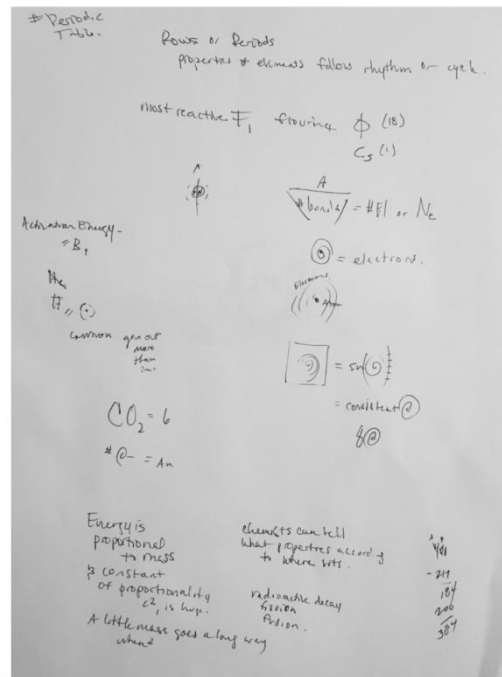 # Periodic
Table.
Rows or Periods
properties of elements follow rhythm or cycle.
most reactive F₁ flourine ϕ (18)
Cs (1)
A
# bonds = #El or Ne
Activation Energy -
= B₁
= electrons.
Electrons
common give out
more
than
in.
= consistent @
8@
CO₂ = 6
# @- = An
Energy is
proportional
to mass
& constant
of proportionality
c², is huge.
A little mass goes a long way
when²
chemists can tell
what properties according
to where sits.
radioactive decay
fission
fusion.
- 217
184
200
384